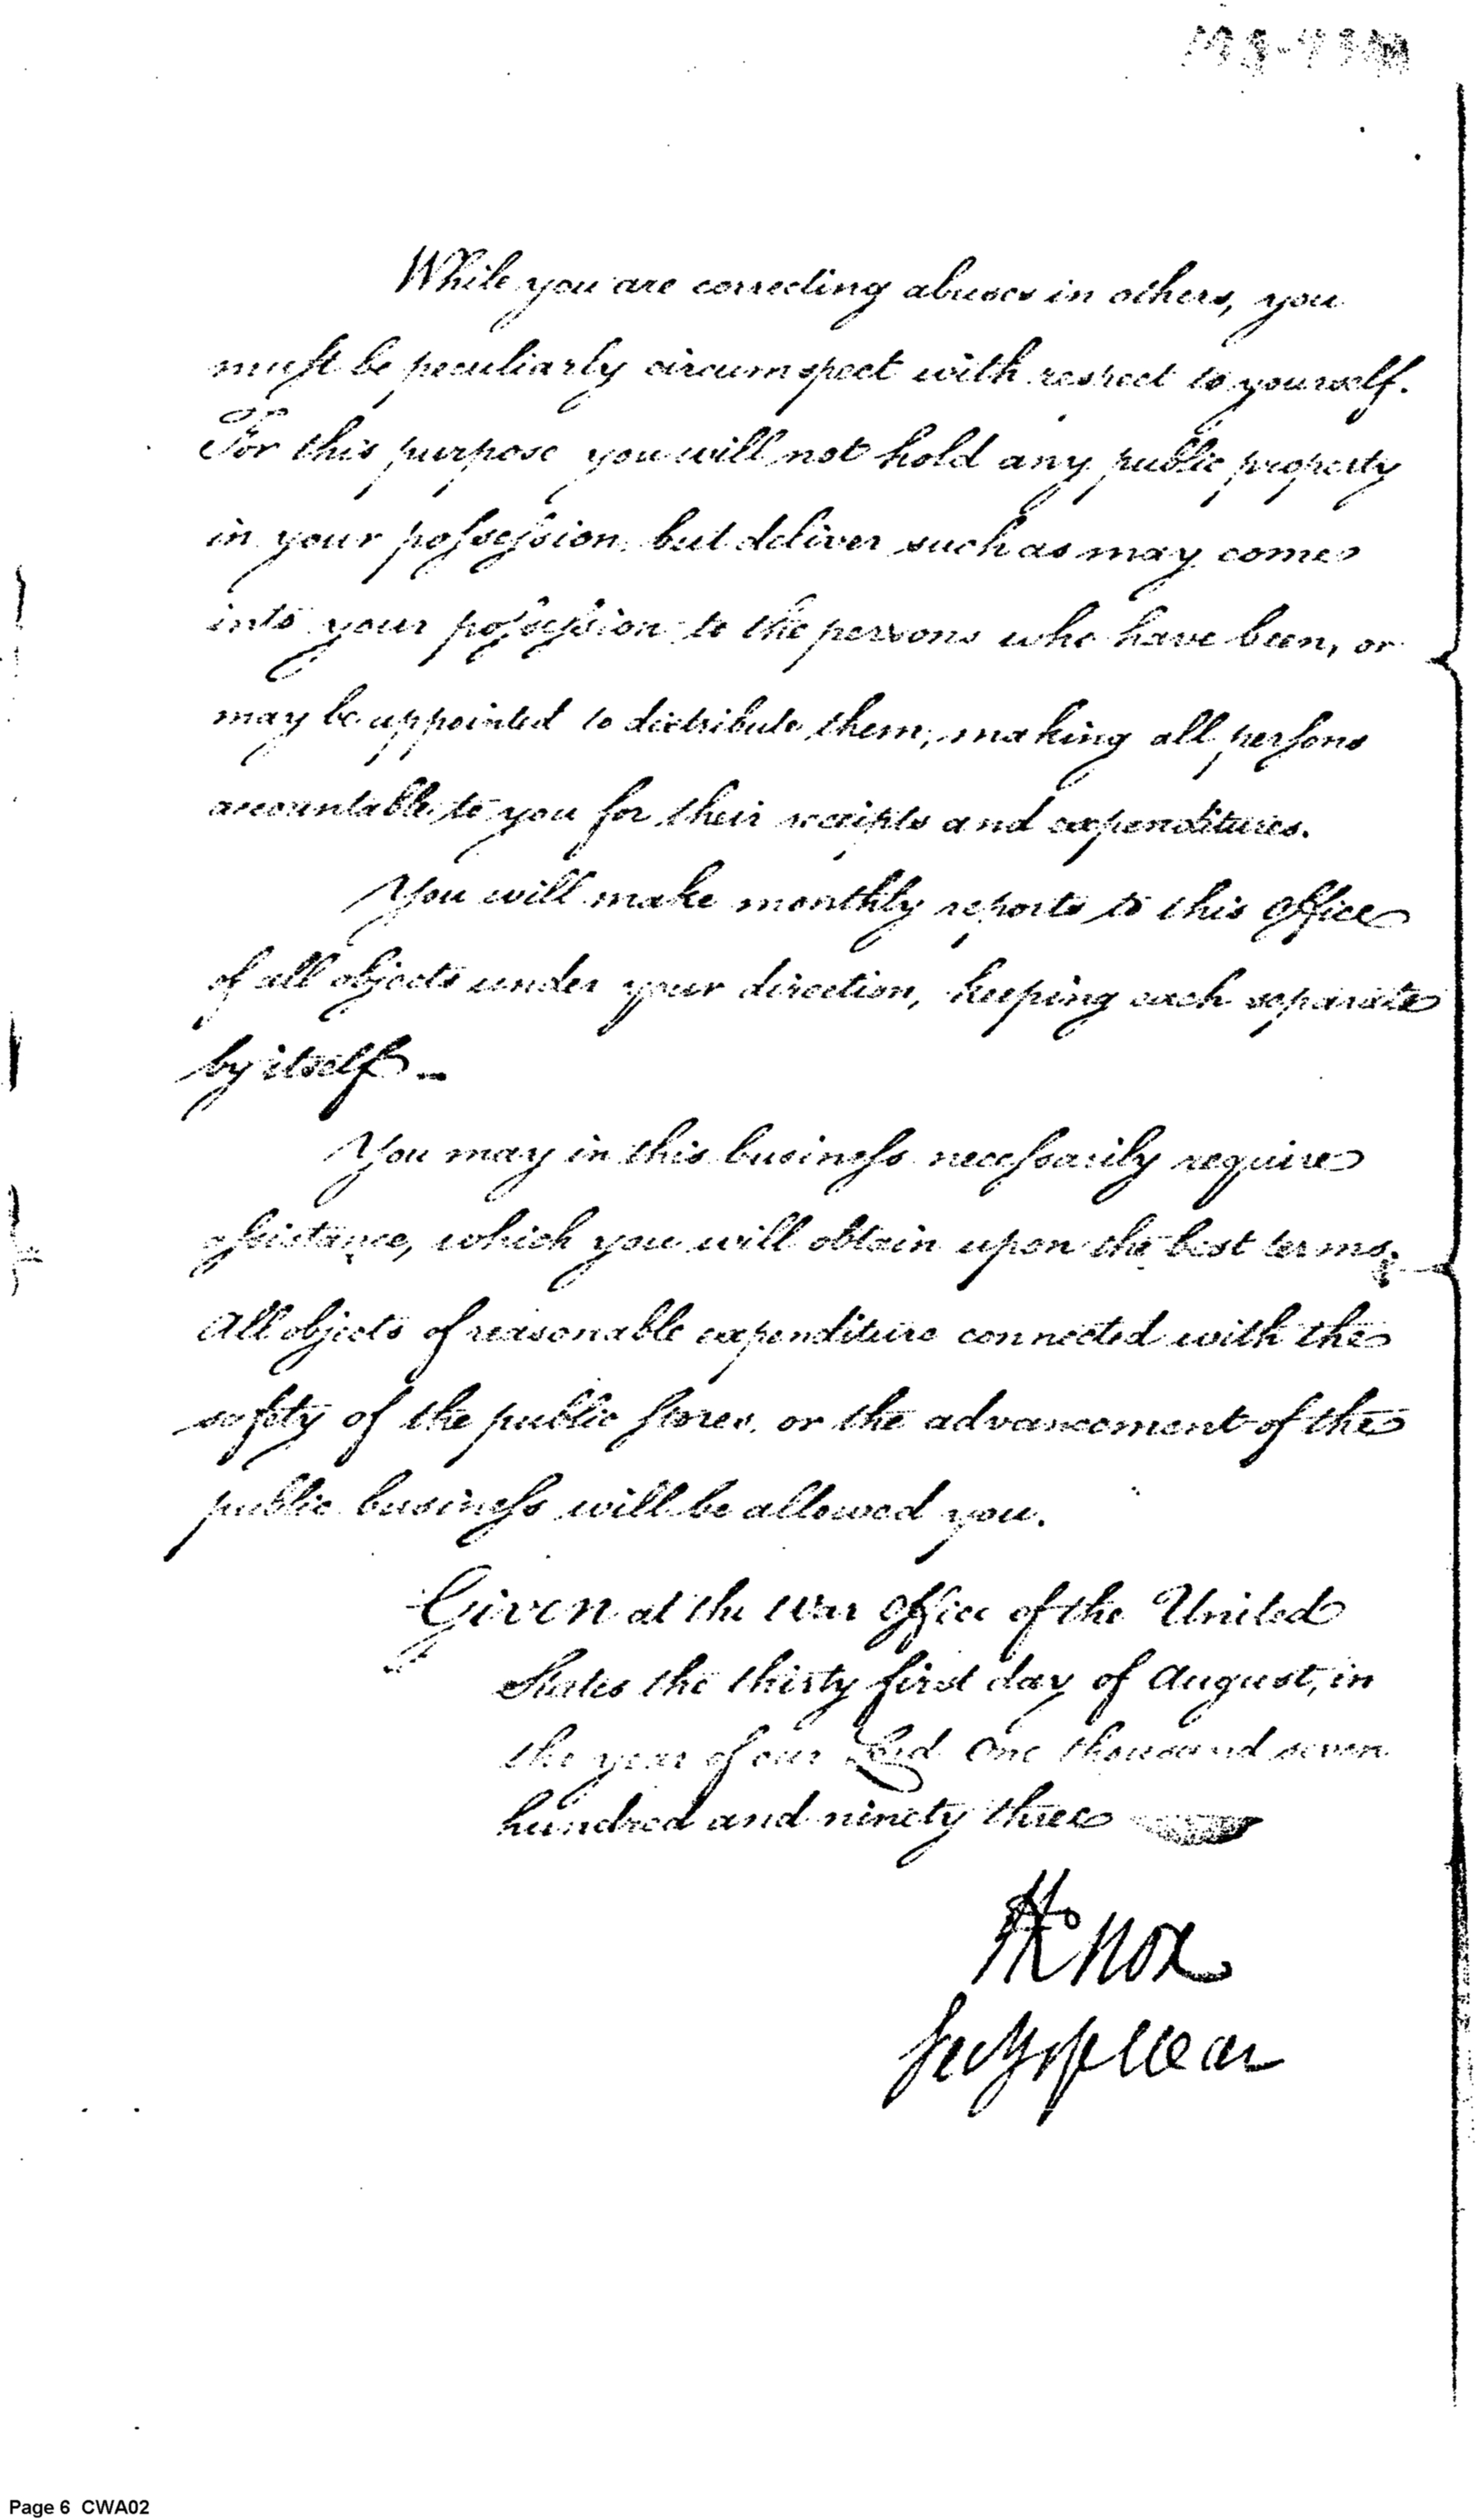 While you are correcting abuses in others, you
must be peculiarly circumspect with respect to yourself.
For this purpose you will not hold any public property
in your possession, but deliver such as may come
into your possession to the persons who have been, or
may be appointed to distribute them, making all persons
accountable to you for their receipts and expenditures.
You will make monthly reports to this Office
of all objects under your direction, keeping each separate
by itself —
You may in this business necessarily require
assistance, which you will obtain upon the best terms.
All objects of reasonable expenditure connected with the
safety of the public stores, or the advancement of the
public business will be allowed you.
Given at the War Office of the United
States the thirty first day of August, in
the year of our Lord One thousand seven
hundred and ninety three
HKnox
Secy of War
Page 6 CWA02